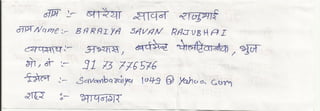 नाम :- बारैया सावन राजुभाई
नाम Name:- BARAIYA SAVAN RAJUBHAI
व्यवसाय:- अभ्यास, गवर्मेन्ट पोलीटेकनीक, भुज
मो. नं :- 91 73 776576
ईमेल :- Savanbaraiya 1049 @ Yahoo. Com
शहर :- भावनगर